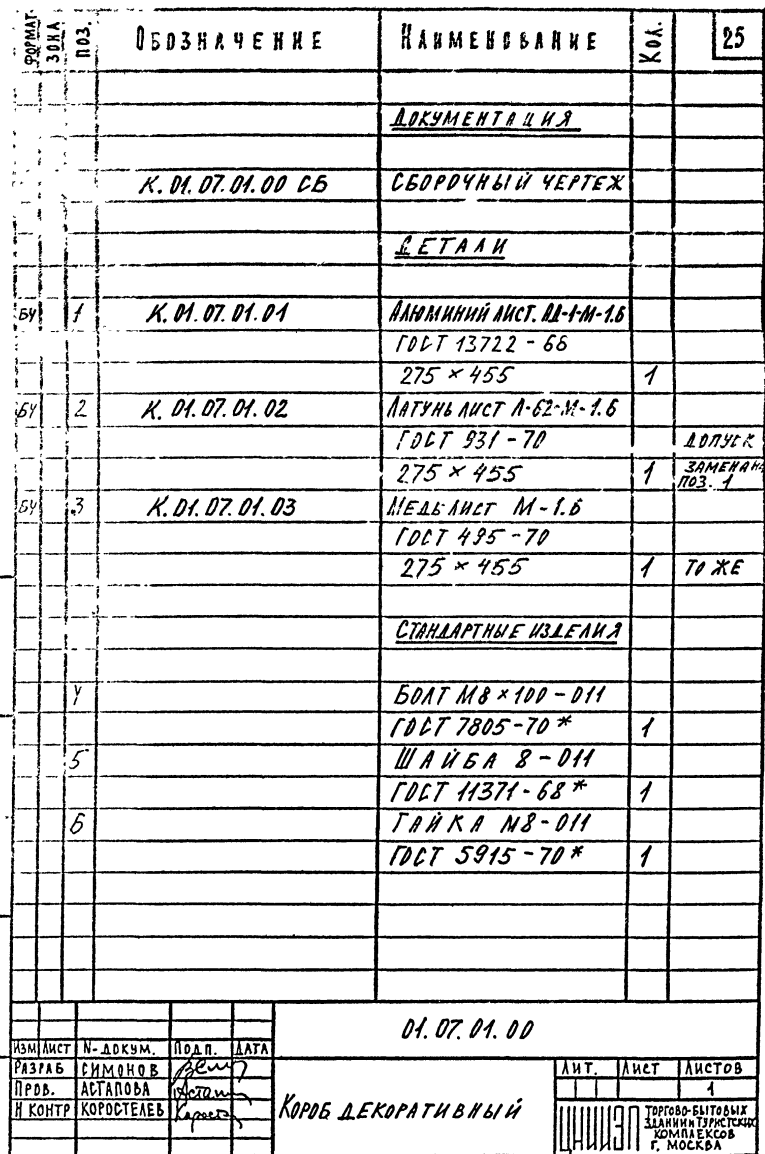 ФОРМАТ ЗОНА ПОЗ. ОБОЗНАЧЕНИЕ НАИМЕНОВАНИЕ КОЛ. 25
ДОКУМЕНТАЦИЯ
К.01.07.01.00 СБ СБОРОЧНЫЙ ЧЕРТЕЖ
ДЕТАЛИ
БЧ 1 К.01.07.01.01 АЛЮМИНИЙ ЛИСТ. АД-1-М-1.6
ГОСТ 13722-68
275 × 455 1
БЧ 2 К.01.07.01.02 ЛАТУНЬ ЛИСТ Л-62-М-1.6
ГОСТ 931-70 ДОПУСК
275 × 455 1 ЗАМЕНА НА
ПОЗ. 1
БЧ 3 К.01.07.01.03 МЕДЬ ЛИСТ М-1.6
ГОСТ 495-70
275 × 455 1 ТО ЖЕ
СТАНДАРТНЫЕ ИЗДЕЛИЯ
4 БОЛТ М8×100-011
ГОСТ 7805-70* 1
5 ШАЙБА 8-011
ГОСТ 11371-68* 1
6 ГАЙКА М8-011
ГОСТ 5915-70* 1
01.07.01.00
ИЗМ ЛИСТ N-ДОКУМ. ПОДП. ДАТА
РАЗРАБ СИМОНОВ
ПРОВ. АСТАПОВА
Н КОНТР КОРОСТЕЛЕВ
КОРОБ ДЕКОРАТИВНЫЙ
ЛИТ. ЛИСТ ЛИСТОВ
1
ЦНИИЭП ТОРГОВО-БЫТОВЫХ
ЗДАНИЙ И ТУРИСТСКИХ
КОМПЛЕКСОВ
Г. МОСКВА